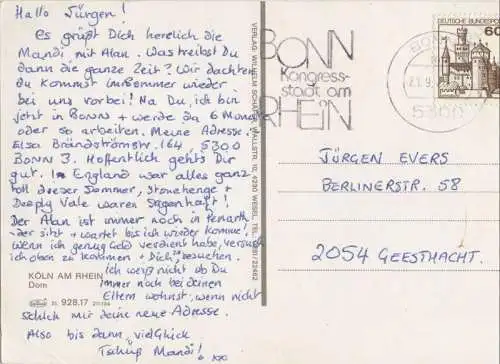 Hallo Jürgen!
Es grüßt Dich herelich die
Mandi mit Alan. Was treibst Du
dann die ganze Zeit? Wir dachten
du kommst im Sommer wieder
bei uns vorbei! Na Du, ich bin
jetzt in BONN + werde da 6 Monate
oder so arbeiten. Meine Adresse:
Elsa Brändströmstr. 164, 5300
BONN 3. Hoffentlich gehts Dir
gut. In England war alles ganz
toll dieser Sommer, Stonehenge +
Deeply Vale waren Sagenhaft!
Der Alan ist immer noch in Penarth
der sitzt + wartet bis ich wieder komme!
Wenn ich genug Geld verdient habe, versuch
ich oben zu kommen + Dich besuchen.
Ich weiß nicht ob Du
immer noch bei deinen
Eltern wohnst, wenn nicht
schick mir deine neue Adresse.
Also bis dann, viel Glück
Tschüß Mandi! xxx
KÖLN AM RHEIN
Dom
928.17
VERLAG: WILHELM SCHÄFER, WALLSTR. 10, 4230 WESEL, TEL. 0281/22462
BONN
Kongress-
stadt am
RHEIN
5300
DEUTSCHE BUNDESPOST
60
JÜRGEN EVERS
BERLINERSTR. 58
2054 GEESTHACHT.